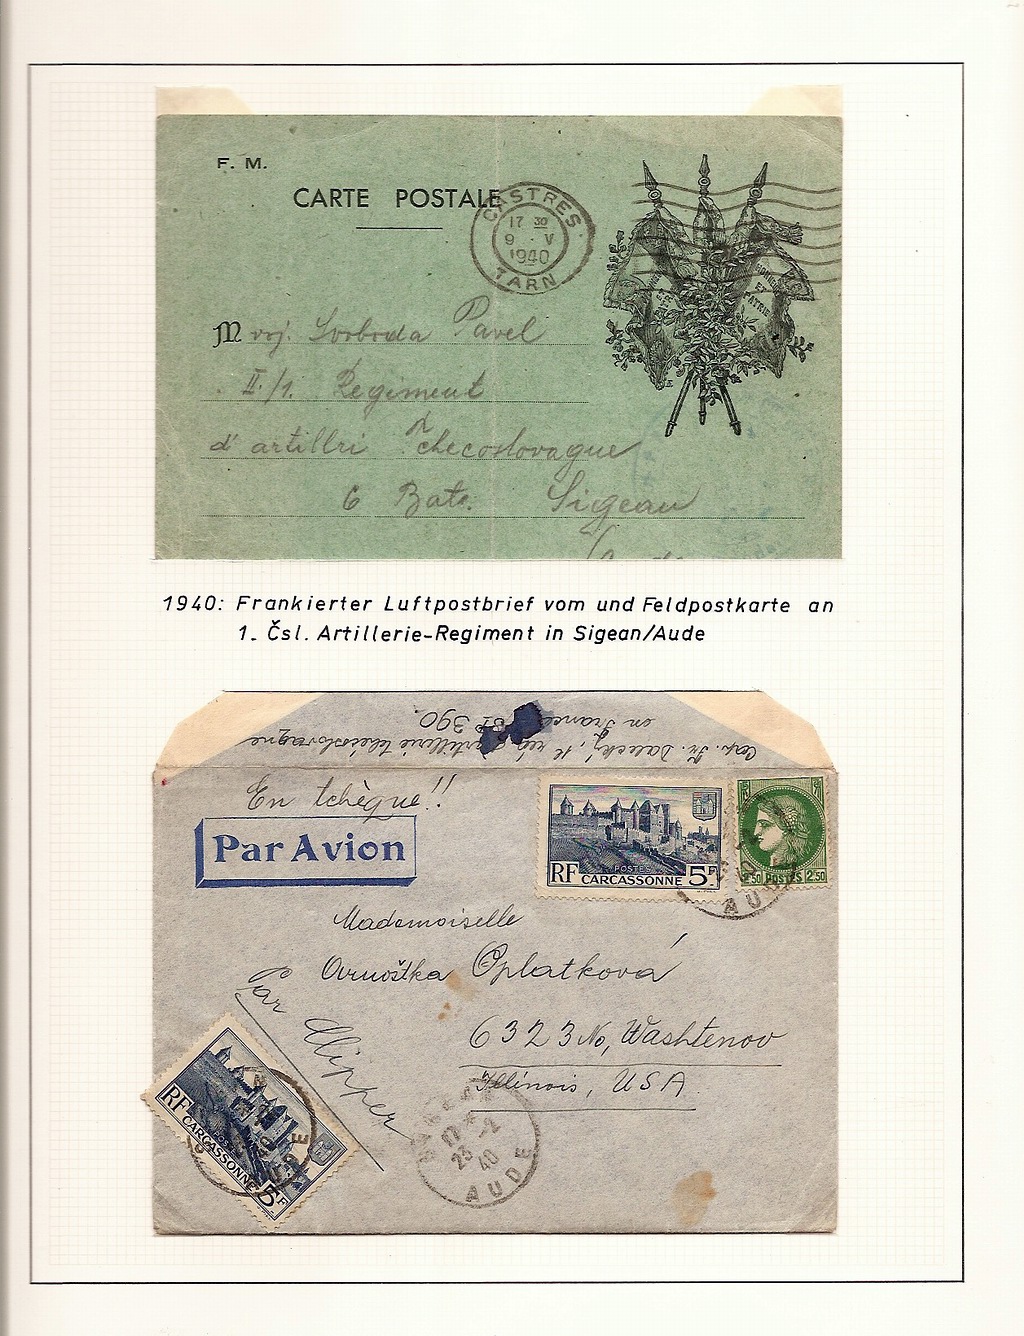 F. M.
CARTE POSTALE
CASTRES
17 30
9 · V
1940
TARN
HONNEUR
ET
PATRIE
M voj. Svoboda Pavel
II./1. Regiment
d'artillri Tchecoslovaque
6 Bate. Sigean
1940: Frankierter Luftpostbrief vom und Feldpostkarte an
1. Čsl. Artillerie-Regiment in Sigean/Aude
artillerie tchécoslovaque
390.
en France
En tchèque!!
Par Avion
RF POSTES CARCASSONNE 5F
2.50 POSTES 2.50
AUDE
Mademoiselle
Arnoštka Oplatková
Par Clipper
6323 No, Washtenov
Illinois, USA
RF POSTES CARCASSONNE 5F
17
23 -2
40
AUDE